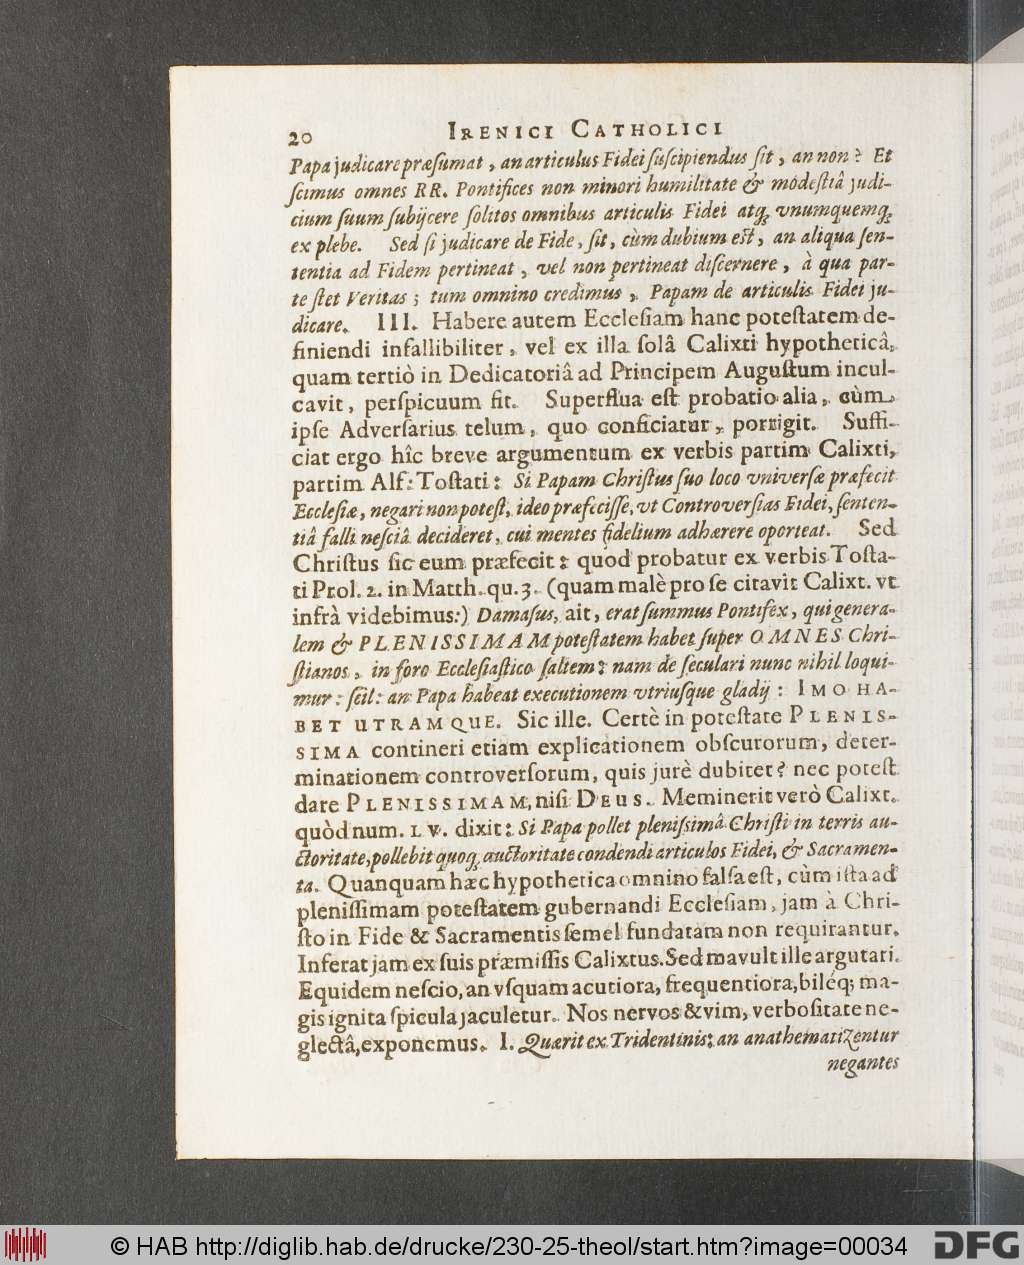 20 IRENICI CATHOLICI
Papa judicare præſumat, an articulus Fidei ſuſcipiendus ſit, an non? Et
ſcimus omnes RR. Pontifices non minori humilitate & modeſtiâ judi-
cium ſuum ſubijcere ſolitos omnibus articulis Fidei atq; vnumquemq;
ex plebe. Sed ſi judicare de Fide, ſit, cùm dubium eſt, an aliqua ſen-
tentia ad Fidem pertineat, vel non pertineat diſcernere, à qua par-
te ſtet Veritas; tum omnino credimus, Papam de articulis Fidei ju-
dicare. III. Habere autem Eccleſiam hanc poteſtatem de-
finiendi infallibiliter, vel ex illa ſolâ Calixti hypotheticâ,
quam tertiò in Dedicatoriâ ad Principem Auguſtum incul-
cavit, perſpicuum fit. Superflua eſt probatio alia, cùm
ipſe Adverſarius telum, quo conficiatur, porrigit. Suffi-
ciat ergo hîc breve argumentum ex verbis partim Calixti,
partim Alf: Toſtati: Si Papam Chriſtus ſuo loco vniverſæ præfecit
Eccleſiæ, negari non poteſt, ideo præfeciſſe, vt Controverſias Fidei, ſenten-
tiâ falli neſciâ decideret, cui mentes fidelium adhærere oporteat. Sed
Chriſtus ſic eum præfecit: quod probatur ex verbis Toſta-
ti Prol. 2. in Matth. qu. 3. (quam malè pro ſe citavit Calixt. vt
infrà videbimus:) Damaſus, ait, erat ſummus Pontifex, qui genera-
lem & PLENISSIMAM poteſtatem habet ſuper OMNES Chri-
ſtianos, in foro Eccleſiaſtico ſaltem: nam de ſeculari nunc nihil loqui-
mur: ſcil: an Papa habeat executionem vtriuſque gladij: IMO HA-
BET UTRAMQUE. Sic ille. Certè in poteſtate PLENIS-
SIMA contineri etiam explicationem obſcurorum, deter-
minationem controverſorum, quis jurè dubitet? nec poteſt
dare PLENISSIMAM, niſi DEUS. Meminerit verò Calixt.
quòd num. LV. dixit: Si Papa pollet pleniſsimâ Chriſti in terris au-
ctoritate, pollebit quoq; auctoritate condendi articulos Fidei, & Sacramen-
ta. Quanquam hæc hypothetica omnino falſa eſt, cùm iſta ad
pleniſſimam poteſtatem gubernandi Eccleſiam, jam à Chri-
ſto in Fide & Sacramentis ſemel fundatam non requirantur.
Inferat jam ex ſuis præmiſſis Calixtus. Sed mavult ille argutari.
Equidem neſcio, an vſquam acutiora, frequentiora, biléq; ma-
gis ignita ſpicula jaculetur. Nos nervos & vim, verboſitate ne-
glectâ, exponemus. I. Quærit ex Tridentinis: an anathematizentur
negantes
© HAB http://diglib.hab.de/drucke/230-25-theol/start.htm?image=00034
DFG